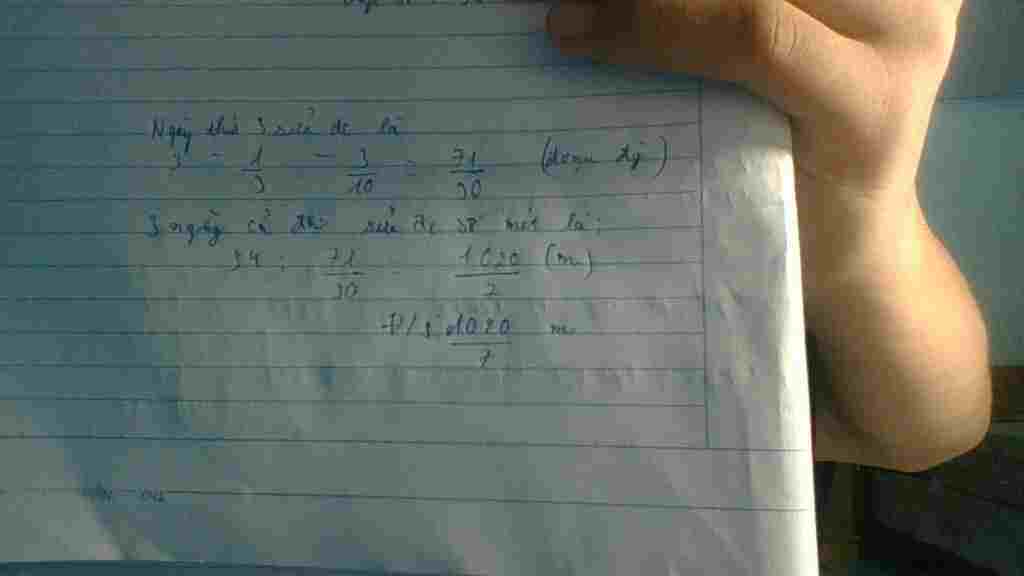 Ngày thứ 3 sửa đc là
3 - 1/3 - 3/10 = 71/30 (đoạn đg)
3 ngày cả thứ sửa đc số mét là:
34 : 71/30 = 1020/7 (m)
Đ/s: 1020/7 m